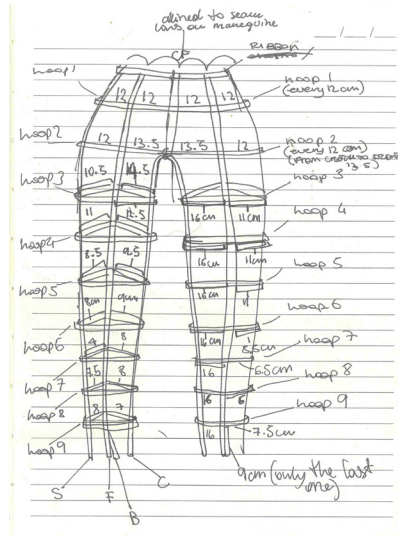 alined to seam
lines on manequine
CF
RIBBON
hoop 1
hoop 1
(every 12 cm)
12 12 12 12
hoop 2
hoop 2
(every 12 cm)
(from crotch to front
13.5)
12 13.5 13.5 12
10.5
hoop 3
hoop 3
11
16cm 11cm
hoop 4
hoop 4
8.5 9.5
16cm 11cm
hoop 5
hoop 5
8cm 9cm
16cm 11
hoop 6
hoop 6
4 8
16cm 8.5cm
hoop 7
hoop 7
7.5 8
16 6.5cm
hoop 8
hoop 8
8 7
16 6
hoop 9
hoop 9
16 7.5cm
9cm (only the last
one)
S F B C